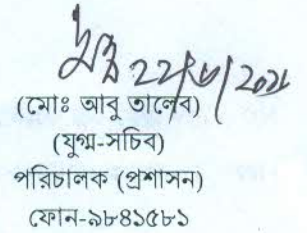 (মোঃ আবু তালেব)
(যুগ্ম-সচিব)
পরিচালক (প্রশাসন)
ফোন-৯৮৪১৫৮১